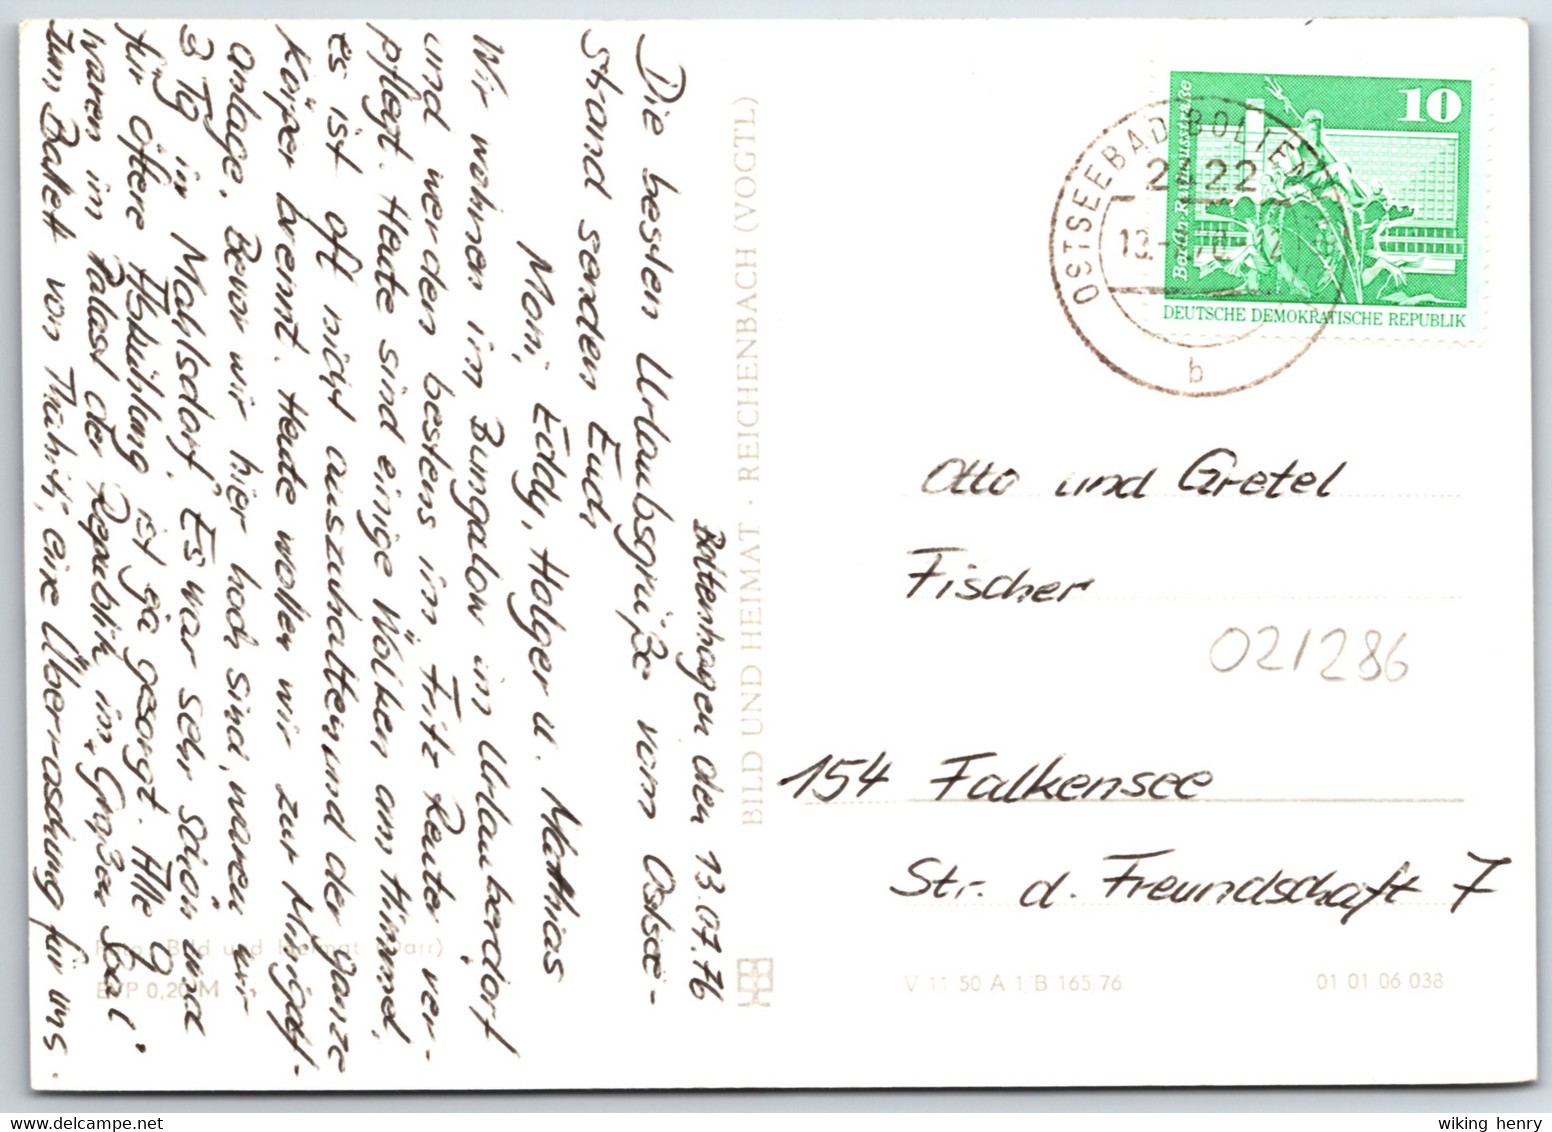 Boltenhagen den 13.07.76
Die besten Urlaubsgrüße vom Ostsee-
Strand senden Euch
Moni, Eddy, Holger u. Mathias
Wir wohnen im Bungalow in Urlauberdorf
und werden bestens im Fritz Reuter ver-
pflegt. Heute sind einige Wolken am Himmel,
es ist oft nicht auszuhalten und der ganze
Körper brennt. Heute wollen wir zur Minigolf-
anlage. Bevor wir hier hoch sind, waren wir
3 Tg in Mahlsdorf. Es war sehr schön und
für öftere Abkühlung ist ja gesorgt. Alle 9
waren im Palast der Republik im „Großen Saal"
zum Ballett von Thahiti, eine Überraschung für uns.
BILD UND HEIMAT · REICHENBACH (VOGTL)
Foto: Bild und Heimat (Darr)
EVP 0,20 M
V 11 50 A 1/B 165/76
01 01 06 038
10
Berlin-Rathausstraße
DEUTSCHE DEMOKRATISCHE REPUBLIK
OSTSEEBAD BOLTEN
2422
13.
b
Otto und Gretel
Fischer
021286
154 Falkensee
Str. d. Freundschaft 7
wiking henry